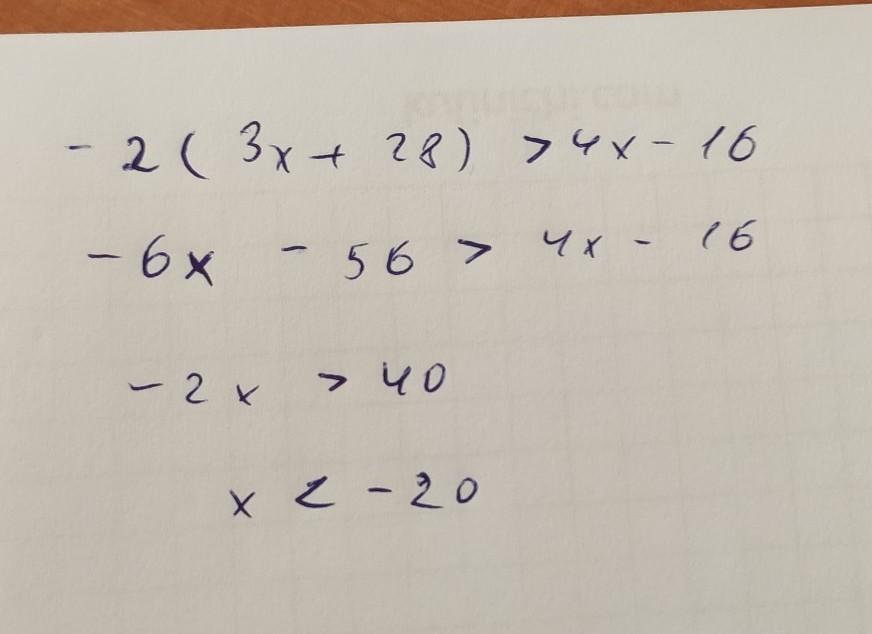 - 2 ( 3x + 28) > 4x - 16
- 6x - 56 > 4x - 16
- 2x > 40
x < - 20